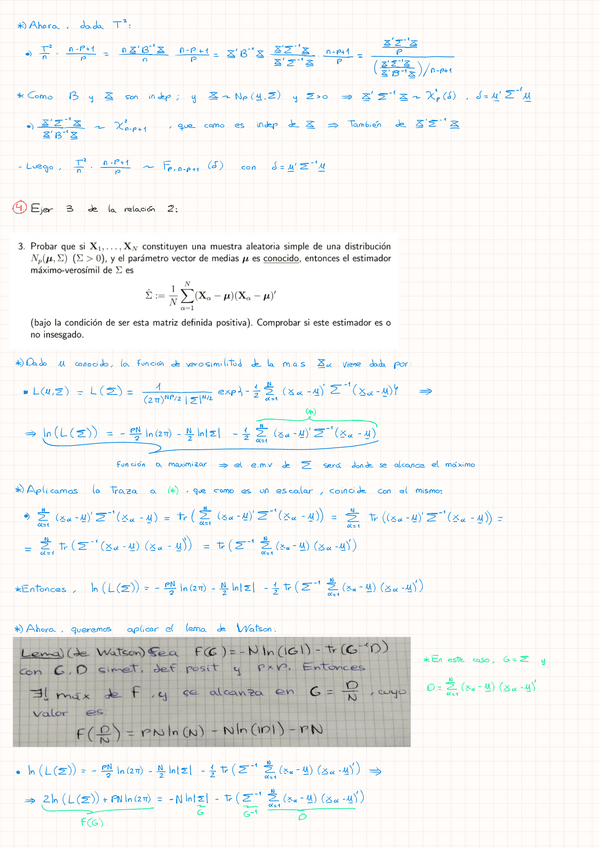 *) Ahora, dada T²:
•) T²/n · (n-p+1)/p = n X'B⁻¹X/n · (n-p+1)/p = X'B⁻¹X · X'Σ⁻¹X/X'Σ⁻¹X · (n-p+1)/p = (X'Σ⁻¹X/p)/((X'Σ⁻¹X/X'B⁻¹X)/n-p+1)
* Como B y X son indep; y X ~ Np(μ,Σ) y Σ>0 ⇒ X'Σ⁻¹X ~ χ²p(δ), δ=μ'Σ⁻¹μ
•) X'Σ⁻¹X/X'B⁻¹X ~ χ²n-p+1, que como es indep de X ⇒ También de X'Σ⁻¹X
- Luego, T²/n · (n-p+1)/p ~ Fp,n-p+1(δ) con δ=μ'Σ⁻¹μ
④ Ejer 3 de la relación 2:
3. Probar que si X₁,...,X_N constituyen una muestra aleatoria simple de una distribución
N_p(μ,Σ) (Σ > 0), y el parámetro vector de medias μ es conocido, entonces el estimador
máximo-verosímil de Σ es
Σ̂ := 1/N Σ_{α=1}^{N} (X_α − μ)(X_α − μ)′
(bajo la condición de ser esta matriz definida positiva). Comprobar si este estimador es o
no insesgado.
*) Dado μ conocido, la función de verosimilitud de la mas X_α viene dada por:
• L(μ,Σ) = L(Σ) = 1/((2π)^{NP/2} |Σ|^{N/2}) exp{-1/2 Σ_{α=1}^{N} (x_α-μ)' Σ⁻¹ (x_α-μ)} ⇒
(*)
⇒ ln(L(Σ)) = -PN/2 ln(2π) - N/2 ln|Σ| - 1/2 Σ_{α=1}^{N} (x_α-μ)' Σ⁻¹ (x_α-μ)
Función a maximizar ⇒ el e.m.v de Σ será donde se alcance el máximo
*) Aplicamos la traza a (*), que como es un escalar, coincide con el mismo:
•) Σ_{α=1}^{N} (x_α-μ)'Σ⁻¹(x_α-μ) = tr(Σ_{α=1}^{N} (x_α-μ)'Σ⁻¹(x_α-μ)) = Σ_{α=1}^{N} Tr((x_α-μ)'Σ⁻¹(x_α-μ)) =
= Σ_{α=1}^{N} Tr(Σ⁻¹(x_α-μ)(x_α-μ)') = tr(Σ⁻¹ Σ_{α=1}^{N} (x_α-μ)(x_α-μ)')
*Entonces, ln(L(Σ)) = -PN/2 ln(2π) - N/2 ln|Σ| - 1/2 Tr(Σ⁻¹ Σ_{α=1}^{N} (x_α-μ)(x_α-μ)')
*) Ahora, queremos aplicar el lema de Watson:
Lema (de Watson) Sea F(G)=-N ln(|G|) - tr(G⁻¹D)
con G, D simet, def posit y p×p. Entonces
∃! máx de F, y se alcanza en G = D/N, cuyo
valor es
F(D/N) = PN ln(N) - N ln(|D|) - PN
*En este caso, G=Σ y
D=Σ_{α=1}^{N} (x_α-μ)(x_α-μ)'
• ln(L(Σ)) = -PN/2 ln(2π) - N/2 ln|Σ| - 1/2 tr(Σ⁻¹ Σ_{α=1}^{N} (x_α-μ)(x_α-μ)') ⇒
⇒ 2ln(L(Σ)) + PN ln(2π) = -N ln|Σ| - tr(Σ⁻¹ Σ_{α=1}^{N} (x_α-μ)(x_α-μ)')
F(G) G G⁻¹ D